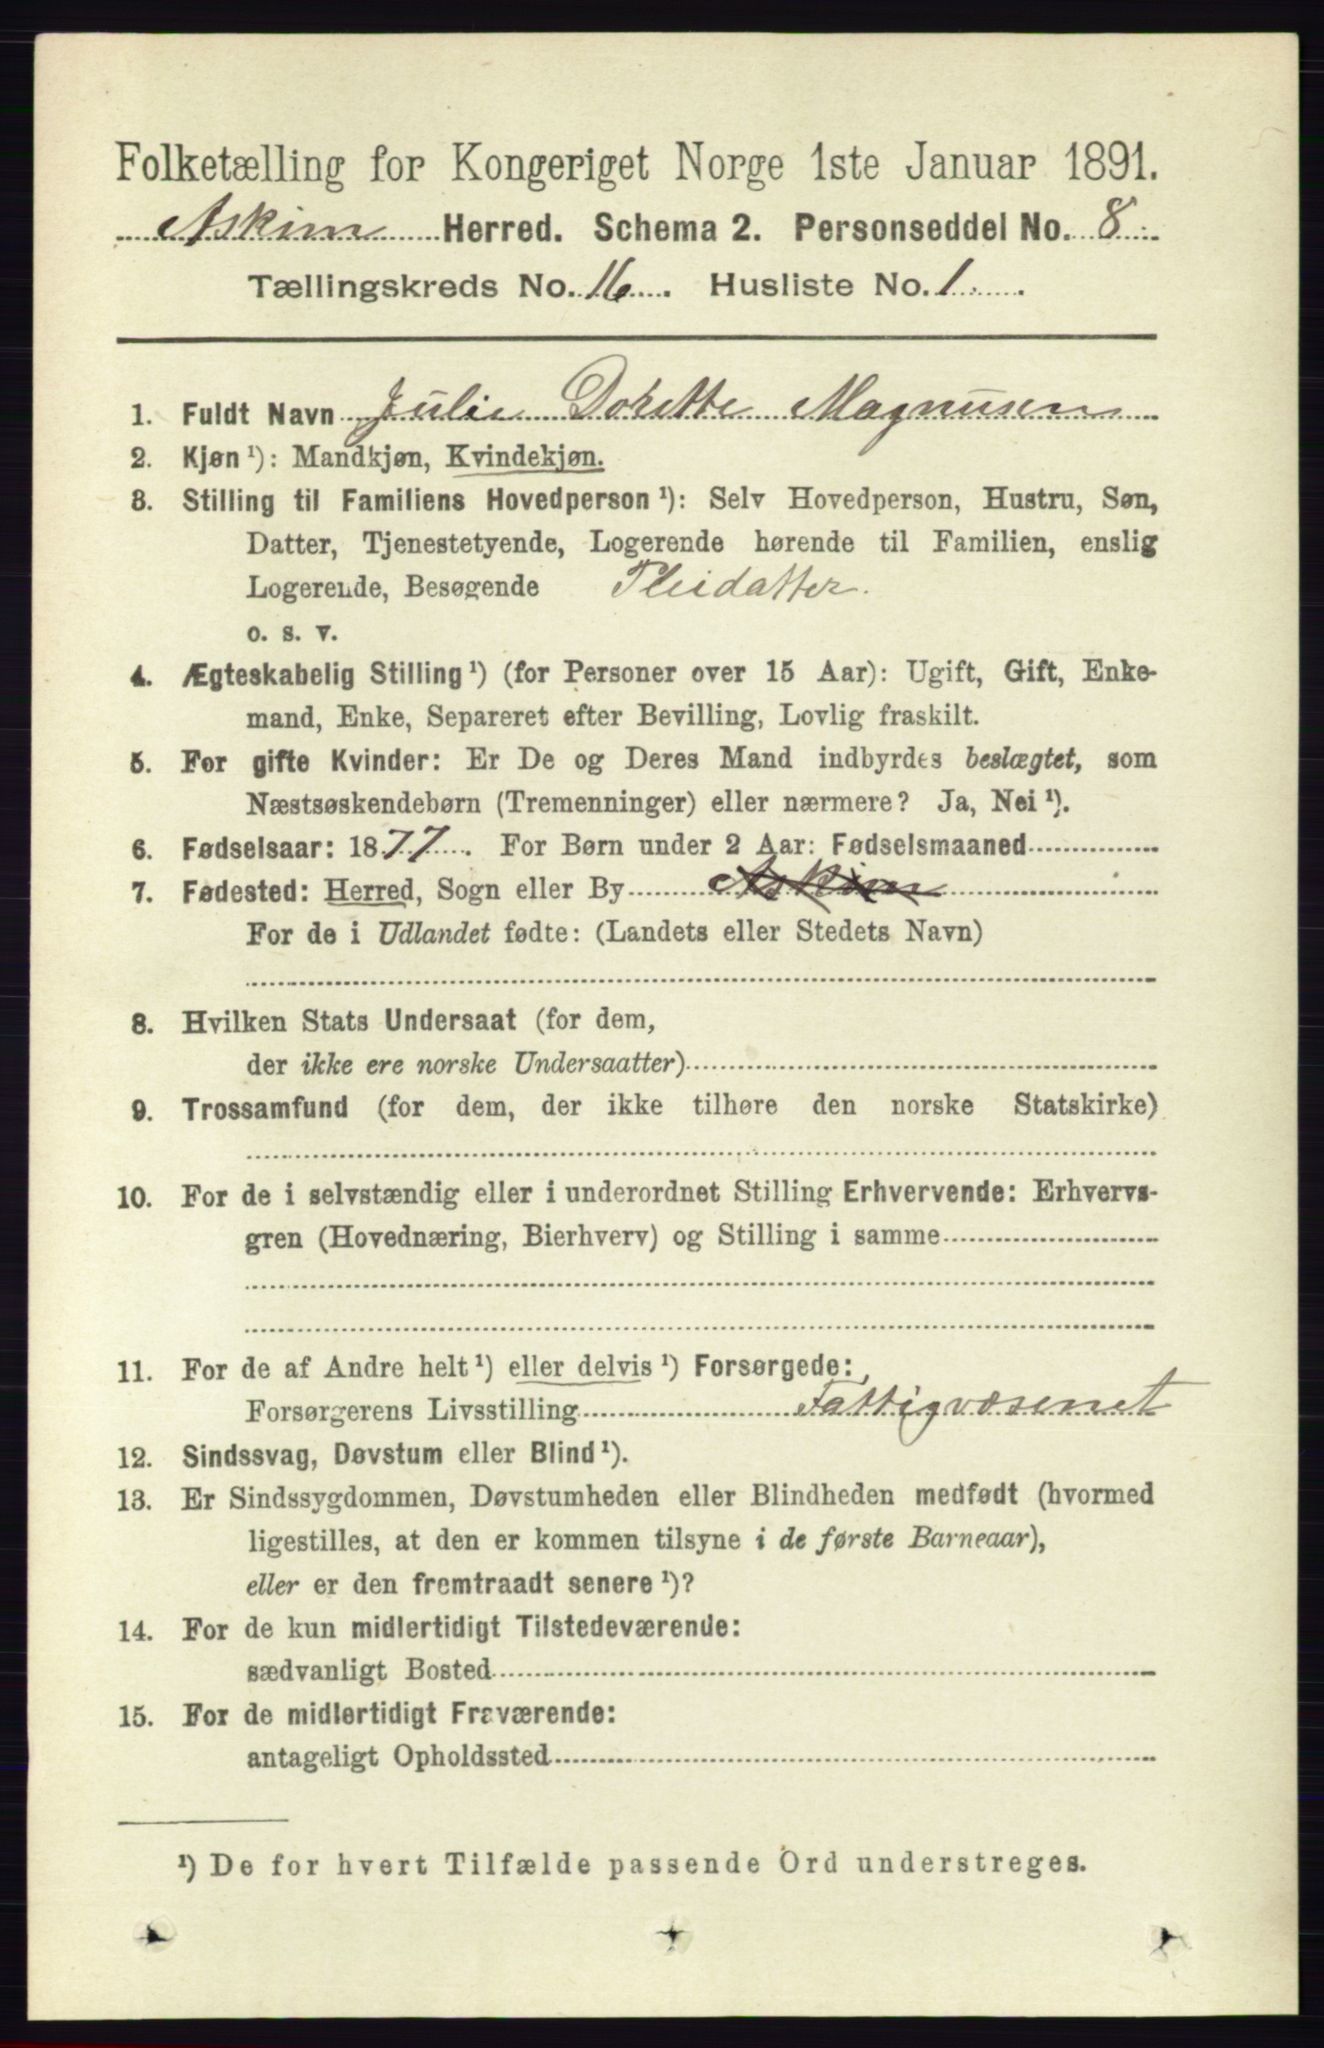 Folketælling for Kongeriget Norge 1ste Januar 1891.
Askim Herred. Schema 2. Personseddel No. 8
Tællingskreds No. 16. Husliste No. 1.
1. Fuldt Navn Julie Dorette Magnusen
2. Kjøn ¹): Mandkjøn, Kvindekjøn.
3. Stilling til Familiens Hovedperson ¹): Selv Hovedperson, Hustru, Søn,
Datter, Tjenestetyende, Logerende hørende til Familien, enslig
Logerende, Besøgende Pleidatter.
o. s. v.
4. Ægteskabelig Stilling ¹) (for Personer over 15 Aar): Ugift, Gift, Enke-
mand, Enke, Separeret efter Bevilling, Lovlig fraskilt.
5. For gifte Kvinder: Er De og Deres Mand indbyrdes beslægtet, som
Næstsøskendebørn (Tremenninger) eller nærmere? Ja, Nei ¹).
6. Fødselsaar: 1877. For Børn under 2 Aar: Fødselsmaaned
7. Fødested: Herred, Sogn eller By Askim
For de i Udlandet fødte: (Landets eller Stedets Navn)
8. Hvilken Stats Undersaat (for dem,
der ikke ere norske Undersaatter)
9. Trossamfund (for dem, der ikke tilhøre den norske Statskirke)
10. For de i selvstændig eller i underordnet Stilling Erhvervende: Erhvervs-
gren (Hovednæring, Bierhverv) og Stilling i samme
11. For de af Andre helt ¹) eller delvis ¹) Forsørgede:
Forsørgerens Livsstilling Fattigvæsenet
12. Sindssvag, Døvstum eller Blind ¹).
13. Er Sindssygdommen, Døvstumheden eller Blindheden medfødt (hvormed
ligestilles, at den er kommen tilsyne i de første Barneaar),
eller er den fremtraadt senere ¹)?
14. For de kun midlertidigt Tilstedeværende:
sædvanligt Bosted
15. For de midlertidigt Fraværende:
antageligt Opholdssted
¹) De for hvert Tilfælde passende Ord understreges.